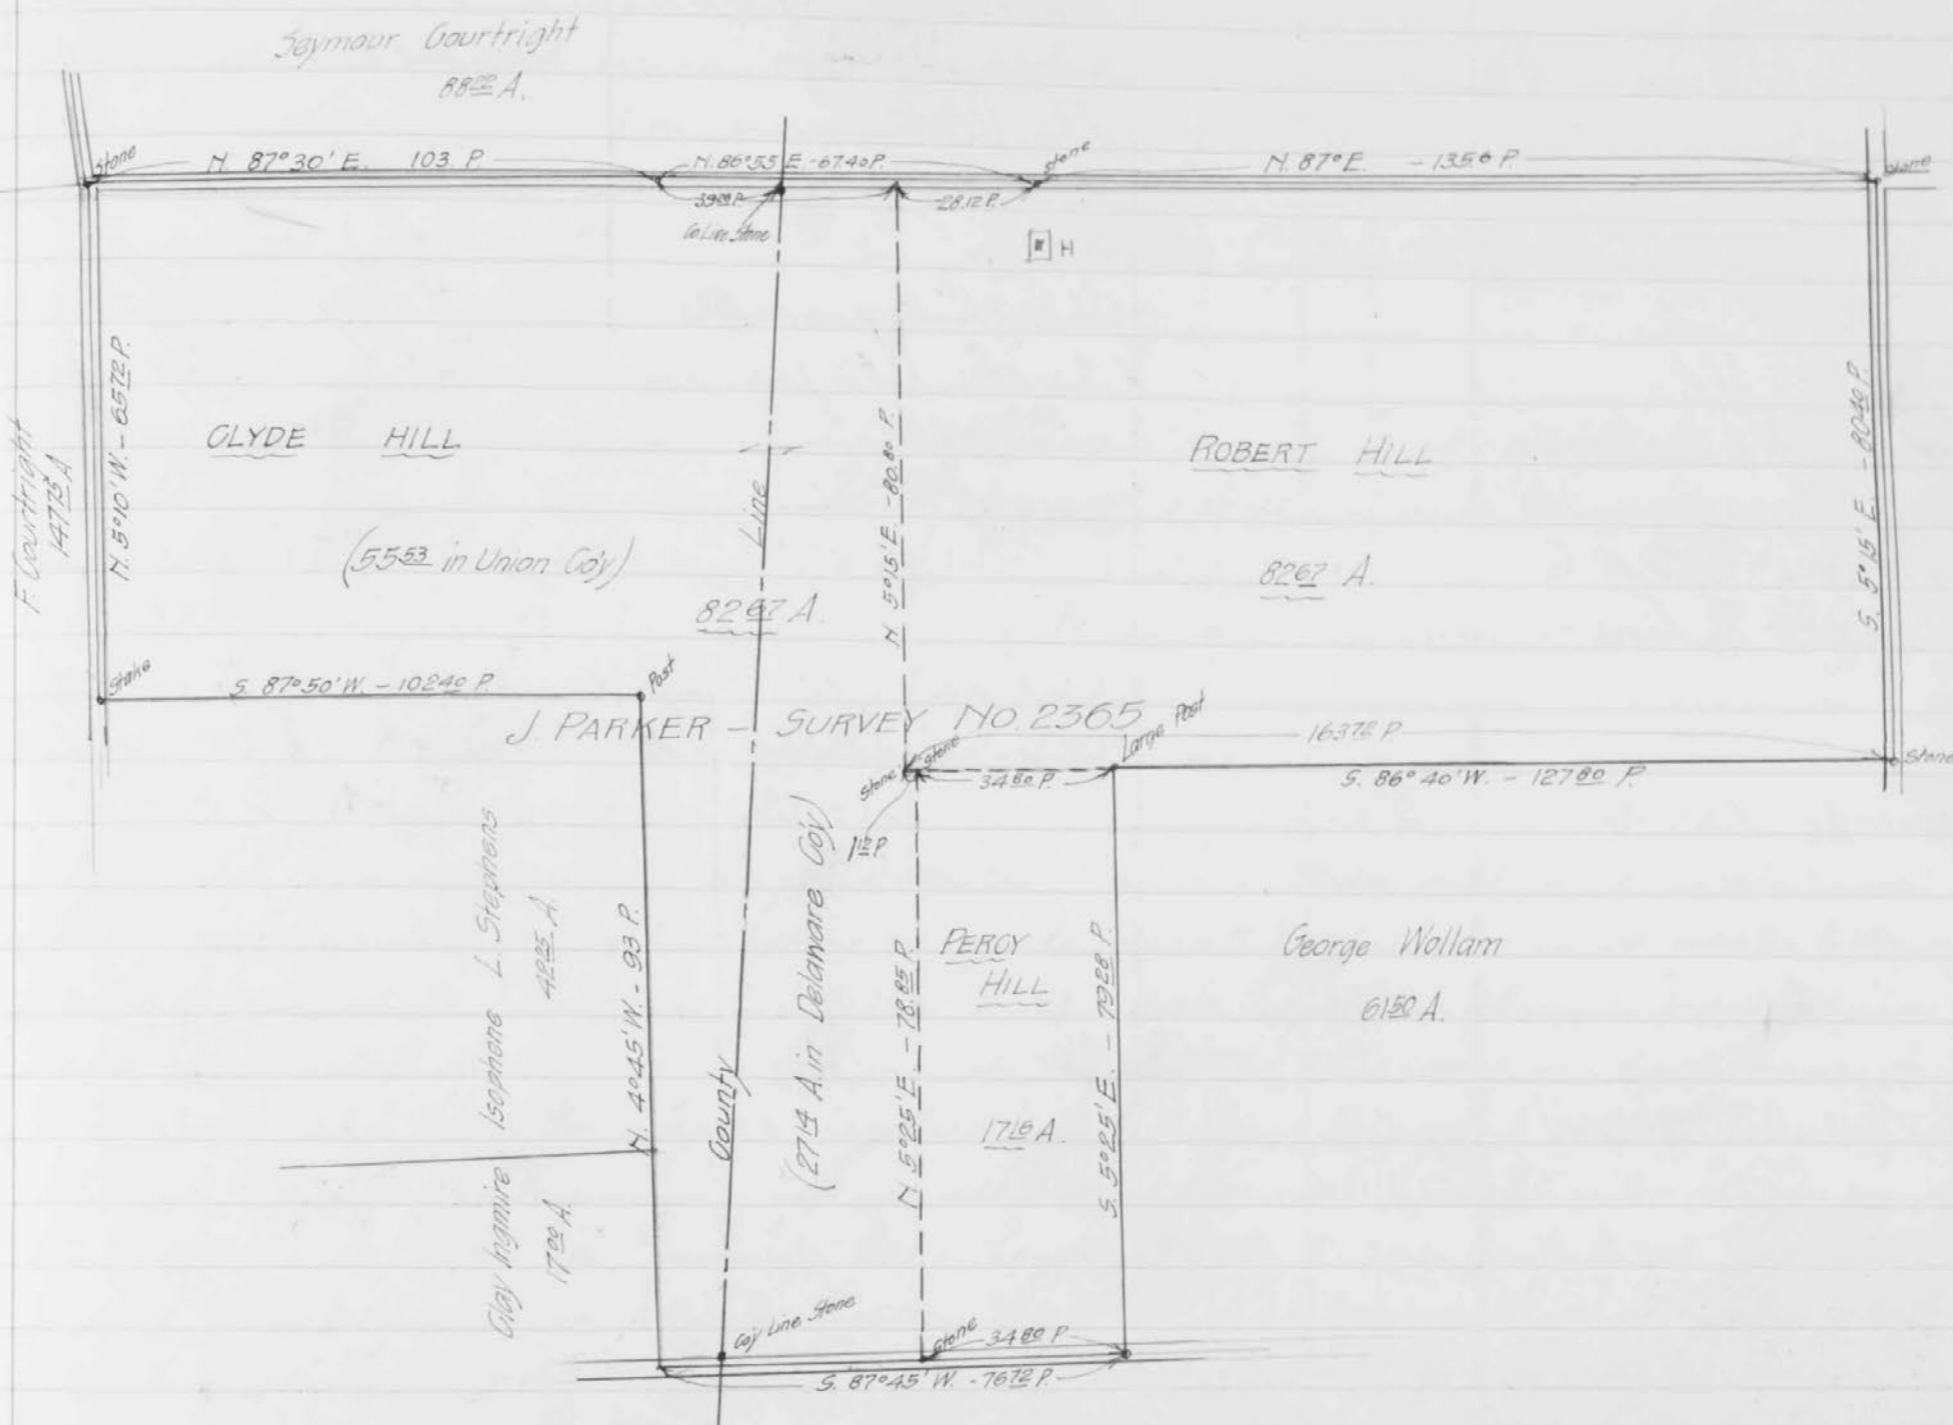 Seymour Courtright
88 00 A.
Stone
N. 87° 30' E. 103 P.
N. 86° 55 E - 67.40 P.
Stone
N. 87° E. - 135.6 P.
Stone
28.12 P.
Co Line Stone
H
N. 5° 10' W. - 65 72 P.
F. Courtright
147 75 A.
CLYDE HILL
(55 53 in Union Co'y)
82 67 A.
County Line
N. 5° 15' E. - 80.80 P.
ROBERT HILL
82 67 A.
S. 5° 15' E. - 80 40 P.
Stake
S. 87° 50' W. - 102 40 P.
Post
J. PARKER - SURVEY NO. 2365
Stone
Stone
Large Post
163 72 P.
34 80 P.
S. 86° 40' W. - 127 80 P.
Stone
Isophene L. Stephens
42 25 A.
N. 4° 45' W. - 93 P.
(27 14 A. in Delaware Co'y)
N. 5° 25' E. - 78.85 P.
PERCY
HILL
17 16 A.
S. 5° 25' E. - 79 28 P.
George Wollam
61 50 A.
Clay Ingmire
17 00 A.
Co'y Line Stone
Stone
34 80 P.
S. 87° 45' W. - 76 72 P.